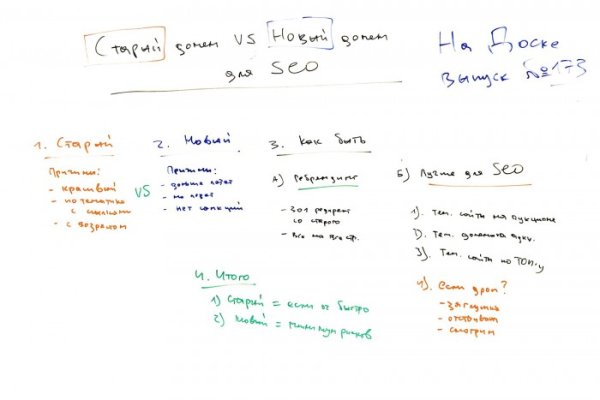 Старый домен VS Новый домен
для SEO
На Доске
выпуск №173
1. Старый
Причины:
- красивый
- по тематике
с ссылками
- с возрастом
VS
2. Новый
Причины:
- дольше
- не
- нет санкций
3. Как быть
А) Ребрендинг
- 301 редирект
со старого
- все на все стр.
Б) Лучше для SEO
1). Тем. сайты на аукционе
2). Тем. домены аукц.
3). Тем. сайты по ТОП-у
4). Если дроп?
- заглушка
- отстаивам
- смотрим
4. Итого
1) Старый = если ок быстро
2) Новый = минимум рисков